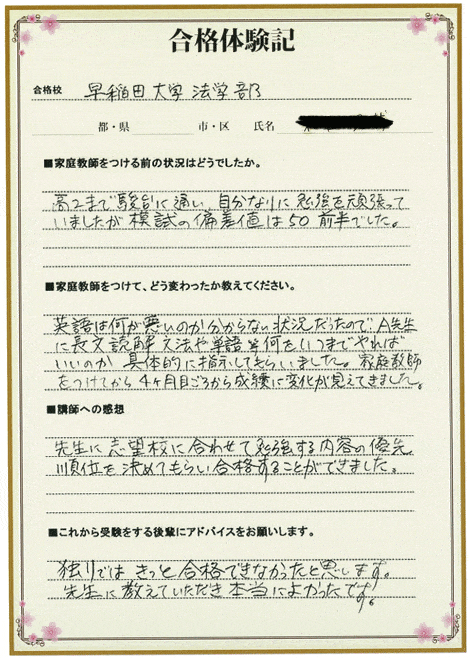 合格体験記
合格校 早稲田大学 法学部
都・県 市・区 氏名
■家庭教師をつける前の状況はどうでしたか。
高2まで駿台に通い、自分なりに勉強を頑張って
いましたが模試の偏差値は50前半でした。
■家庭教師をつけて、どう変わったか教えてください。
英語は何が悪いのか分からない状況だったので、A先生
に長文読解、文法や単語等何をいつまでやれば
いいのか 具体的に指示してもらいました。家庭教師
をつけてから4ヶ月目ごろから成績に変化が見えてきました。
■講師への感想
先生に志望校に合わせて勉強する内容の優先
順位を決めてもらい合格することができました。
■これから受験をする後輩にアドバイスをお願いします。
独りでは きっと合格できなかったと思います。
先生に教えていただき本当によかったです。